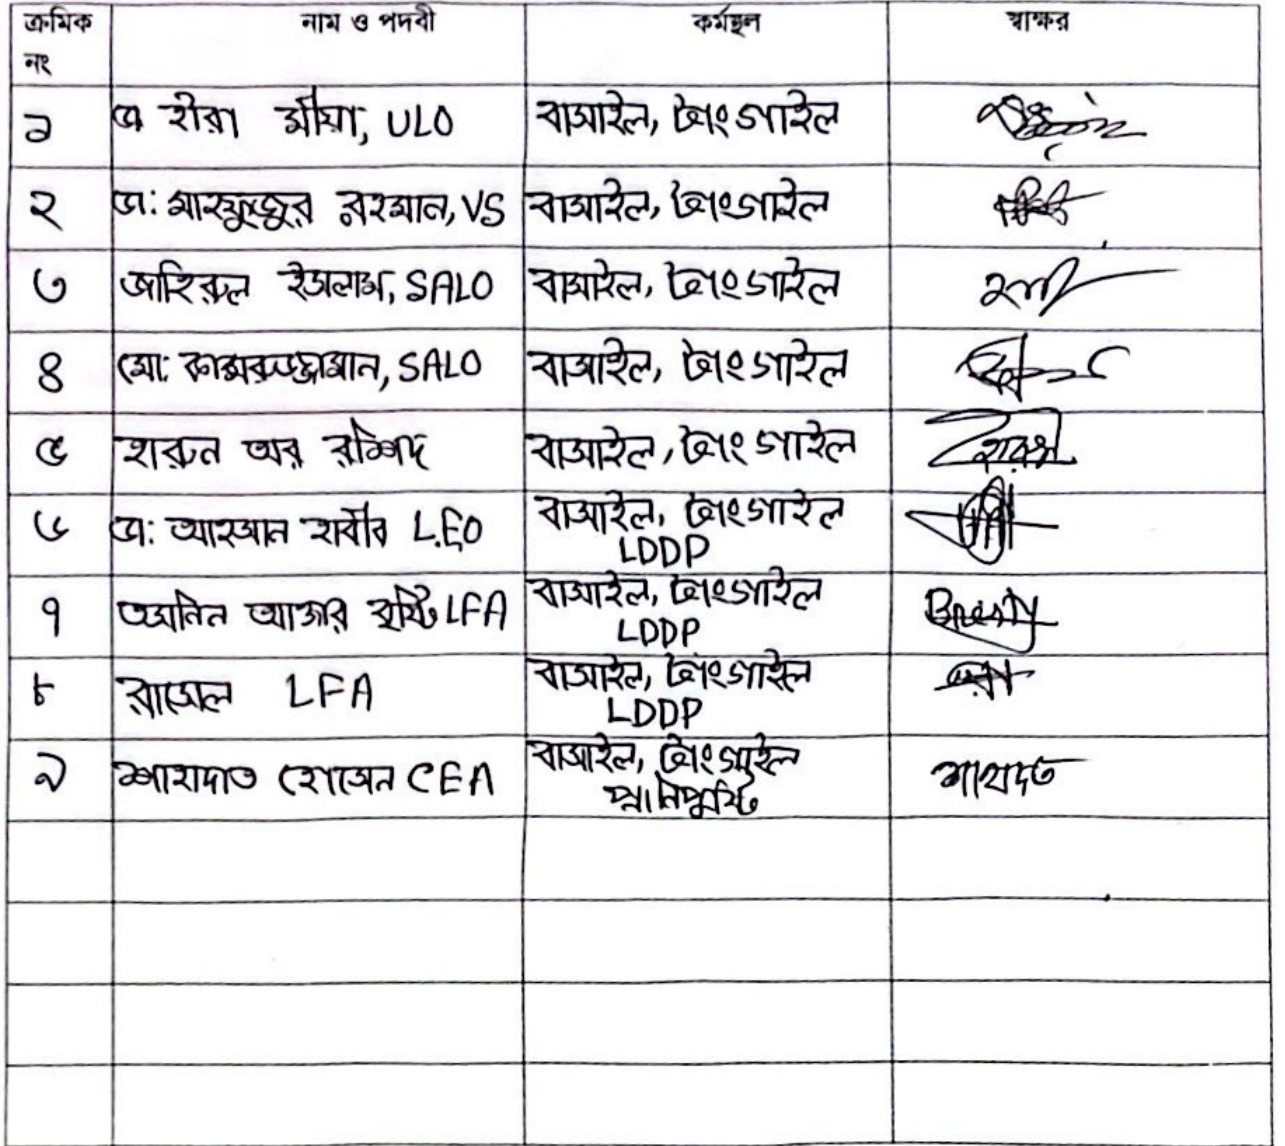 ক্রমিক নং নাম ও পদবী কর্মস্থল স্বাক্ষর
১ ডা হীরা মীয়া, ULO বাসাইল, টাংগাইল
২ ডা: মাহফুজুর রহমান, VS বাসাইল, টাংগাইল
৩ জাহিরুল ইসলাম, SALO বাসাইল, টাংগাইল
৪ মো: কামরুজ্জামান, SALO বাসাইল, টাংগাইল
৫ হারুন অর রশিদ বাসাইল, টাংগাইল হারুন
৬ ডা: আহসান হাবীব L.EO বাসাইল, টাংগাইল
LDDP
৭ তসনিন আক্তার বৃষ্টি LFA বাসাইল, টাংগাইল
LDDP
৮ রাসেল LFA বাসাইল, টাংগাইল
LDDP
৯ শাহাদাত হোসেন CEA বাসাইল, টাংগাইল শাহাদত
প্রানিপুষ্টি